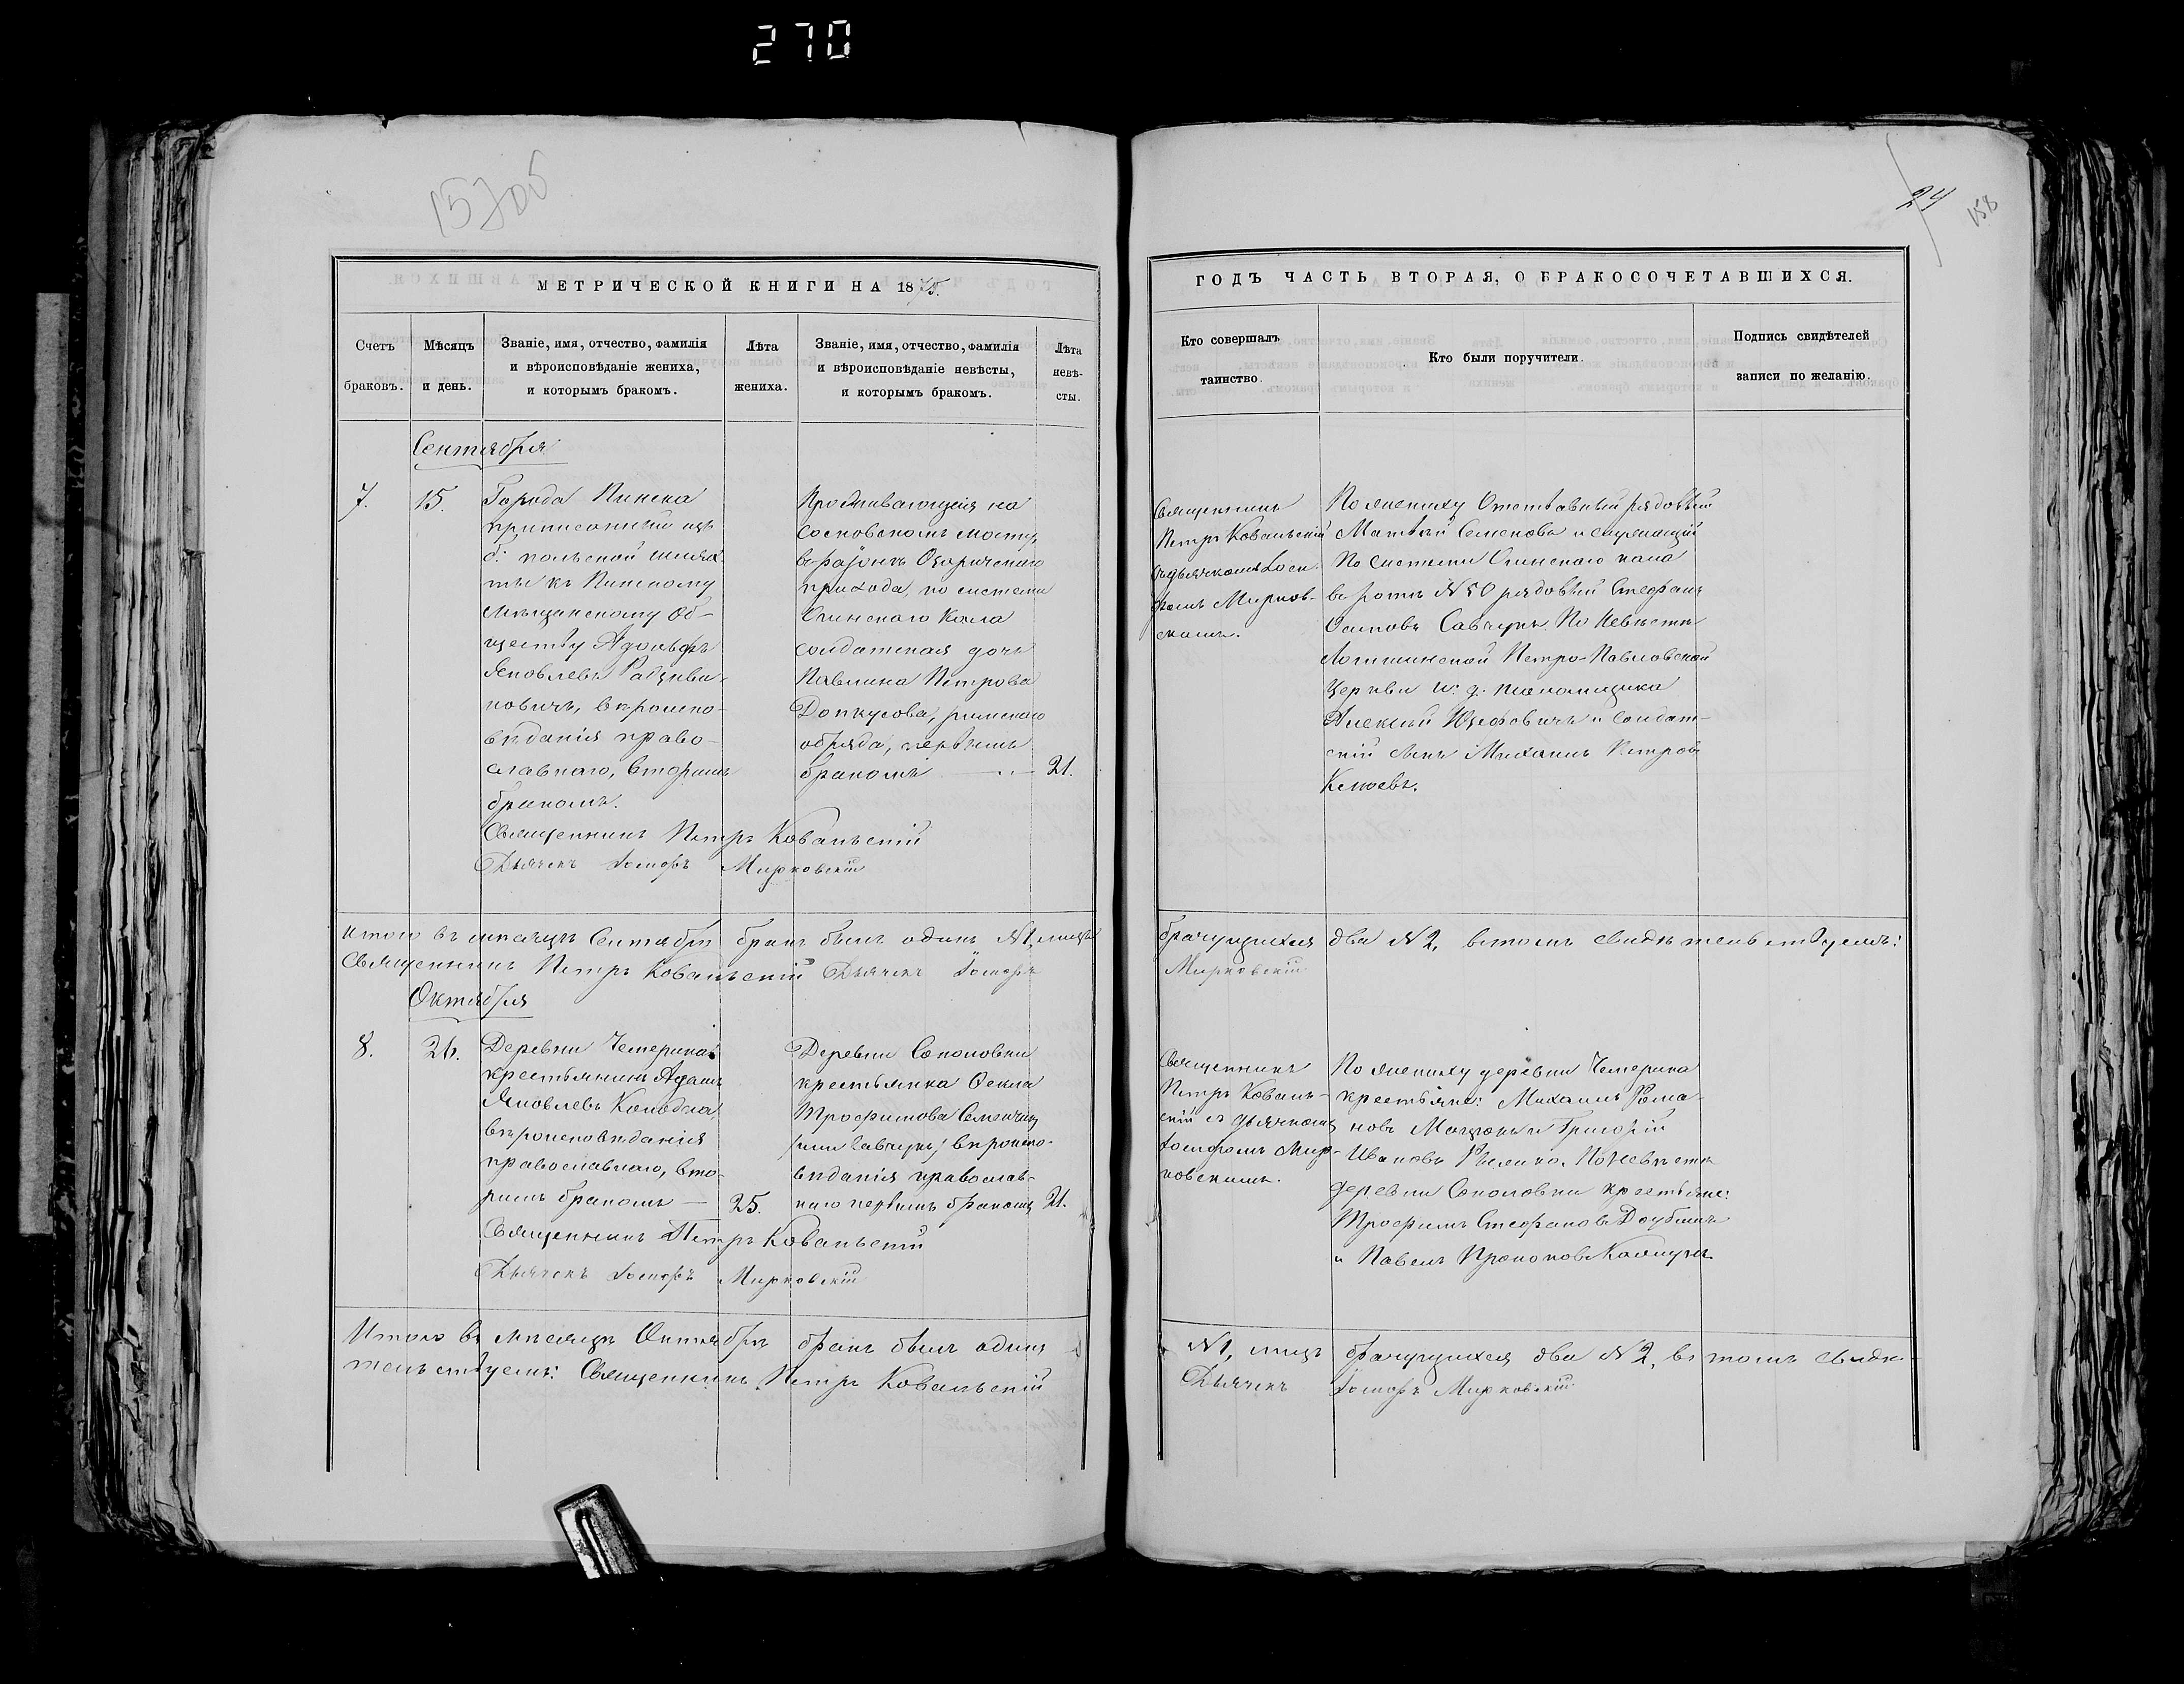 270
15705
24
158
МЕТРИЧЕСКОЙ КНИГИ НА 1875.
Счетъ браковъ.
Мѣсяцъ и день.
Званіе, имя, отчество, фамилія
и вѣроисповѣданіе жениха,
и которымъ бракомъ.
Лѣта жениха.
Званіе, имя, отчество, фамилія
и вѣроисповѣданіе невѣсты,
и которымъ бракомъ.
Лѣта невѣ-
сты.
Сентября
7.
15.
Города Пинска
приписанный изъ
б: польской шлях-
ты къ Пинскому
мѣщанскому об-
ществу Адольфъ
Яковлевъ
новичъ, вѣроиспо-
вѣданія право-
славнаго, вторымъ
бракомъ.
Проживающая на
Сосновскомъ мосту,
въ районѣ Озаричскаго
прихода, по системѣ
Огинскаго Кала
солдатская дочь
Павлина Петрова
Допкусова, римскаго
обряда, первымъ
бракомъ
21.
Священникъ Петръ Ковальскій
Дьячекъ Іосифъ Мирковскій
Итого въ мѣсяцѣ Сентябрѣ бракъ былъ одинъ №1, лицъ
Священникъ Петръ Ковальскій Дьячекъ Іосифъ
Октября
8.
26.
Деревни Чемерина
крестьянинъ Адамъ
Яковлевъ Колодка
вѣроисповѣданія
православнаго, вто-
рымъ бракомъ —
25.
Деревни Соколовки
крестьянка Ѳекла
Трофимова
(или Савчукъ) вѣроиспо-
вѣданія православ-
наго первымъ бракомъ
21.
Священникъ Петръ Ковальскій
Дьячекъ Іосифъ Мирковскій
Итого въ мѣсяцѣ Октябрѣ бракъ былъ одинъ
тельствуемъ: Священникъ Петръ Ковальскій
ГОДЪ ЧАСТЬ ВТОРАЯ, О БРАКОСОЧЕТАВШИХСЯ.
Кто совершалъ
таинство.
Кто были поручители.
Подпись свидѣтелей
записи по желанію.
Священникъ
Петръ Ковальскій
съ дьячкомъ Іоси-
фомъ Мирков-
скимъ.
По жениху Отставный рядовый
Матвѣй Семеновъ и служащій
По системѣ Огинскаго кала
въ ротѣ №50 рядовый Стефанъ
Осиповъ Савчукъ. По Невѣстѣ
Логишинской Петро-Павловской
Церкви и: д: псаломщика
Алексѣй Юзефовичъ и солдат-
скій сынъ Михаилъ Петровъ
брачущихся два №2, въ томъ свидѣтельствуемъ:
Мирковскій
Священникъ
Петръ Коваль-
скій съ дьячкомъ
Іосифомъ Мир-
ковскимъ.
По жениху деревни Чемерина
крестьяне: Михаилъ Рома-
новъ и Григорій
Ивановъ По Невѣстѣ
деревни Соколовки крестьяне:
Трофимъ Стефановъ
и Павелъ Прокоповъ
№1, лицъ брачущихся два №2, въ томъ свидѣ-
Дьячекъ Іосифъ Мирковскій